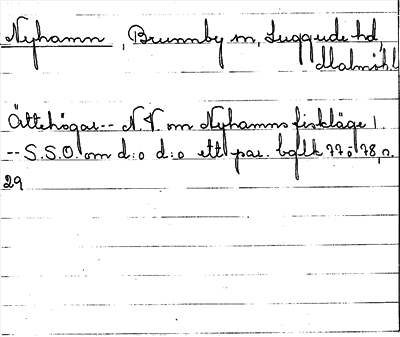 Nyhamn, Brunnby sn, Luggude hd,
Malmöhl
Ättehögar -- N.V. om Nyhamns fiskläge 1.
-- S.S.O. om d:o d:o ett par. bglk 77 o 78, n.
29